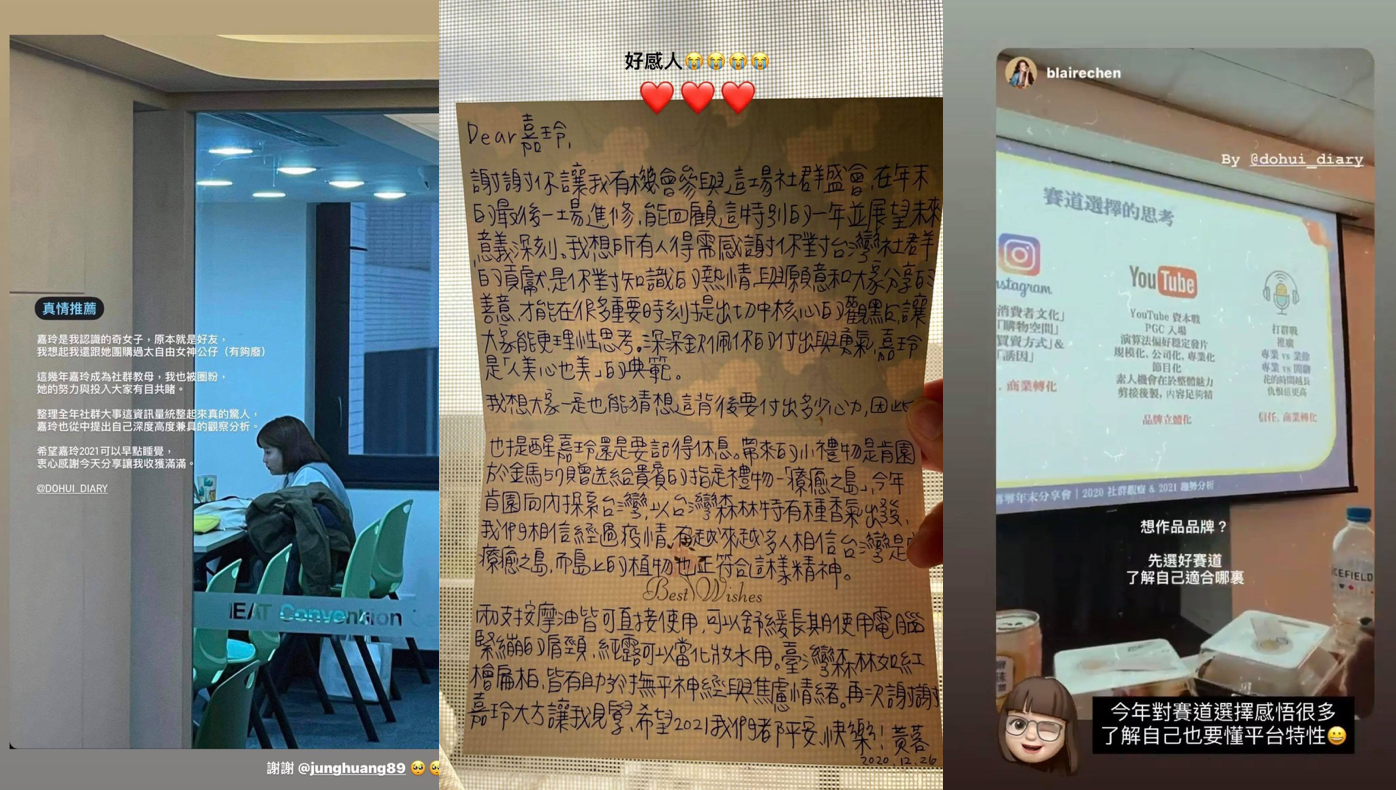 真情推薦
嘉玲是我認識的奇女子，原本就是好友，
我想起我還跟她團購過太自由女神公仔（有夠廢）
這幾年嘉玲成為社群教母，我也被圈粉，
她的努力與投入大家有目共睹。
整理全年社群大事這資訊量統整起來真的驚人，
嘉玲也從中提出自己深度高度兼具的觀察分析。
希望嘉玲2021可以早點睡覺，
衷心感謝今天分享讓我收獲滿滿。
@DOHUI_DIARY
HEAT Convention
謝謝 @junghuang89 🥺🥺
好感人😭😭😭😭
❤️❤️❤️
Dear嘉玲,
謝謝你讓我有機會參與這場社群盛會,在年末
的最後一場進修,能回顧這特別的一年並展望未來
意義深刻。我想所有人得需感謝你對台灣社群
的貢獻,是你對知識的熱情,與願意和大家分享的
善意,才能在很多重要時刻提出切中核心的觀點,讓
大家能更理性思考。深深敬佩你的付出與勇氣,嘉玲
是「人美心也美」的典範。
我想大家一定也能猜想這背後要付出多少心力,因此
也提醒嘉玲還是要記得休息。帶來的小禮物是肯園
於金馬的贈送給貴賓的指定禮物-「療癒之島」,今年
肯園向內探索台灣,以台灣森林特有種香氣出發,
我們相信經過疫情,有越來越多人相信台灣是
療癒之島,而島上的植物也正符合這樣精神。
Best Wishes
兩支按摩油皆可直接使用,可以舒緩長期使用電腦
緊繃的肩頸,純露可以當化妝水用。臺灣森林如紅
檜扁柏,皆有助於撫平神經與焦慮情緒。再次謝謝
嘉玲大方讓我見學,希望2021我們都平安、快樂!黃蓉
2020.12.26
blairechen
By @dohui_diary
賽道選擇的思考
Instagram
消費者文化」
「購物空間」
買賣方式」&
「誘因」
商業轉化
YouTube
YouTube 資本戰
PGC 入場
演算法偏好穩定發片
規模化, 公司化, 專業化
節目化
素人機會在於整體魅力
剪接後製, 內容足夠精
品牌立體化
打群戰
推廣
專業 vs 業餘
專業 vs 閒聊
花的時間越長
仇恨值更高
信任, 商業轉化
年末分享會 | 2020 社群觀察 & 2021 趨勢分析
想作品品牌？
先選好賽道
了解自己適合哪裏
今年對賽道選擇感悟很多
了解自己也要懂平台特性😀